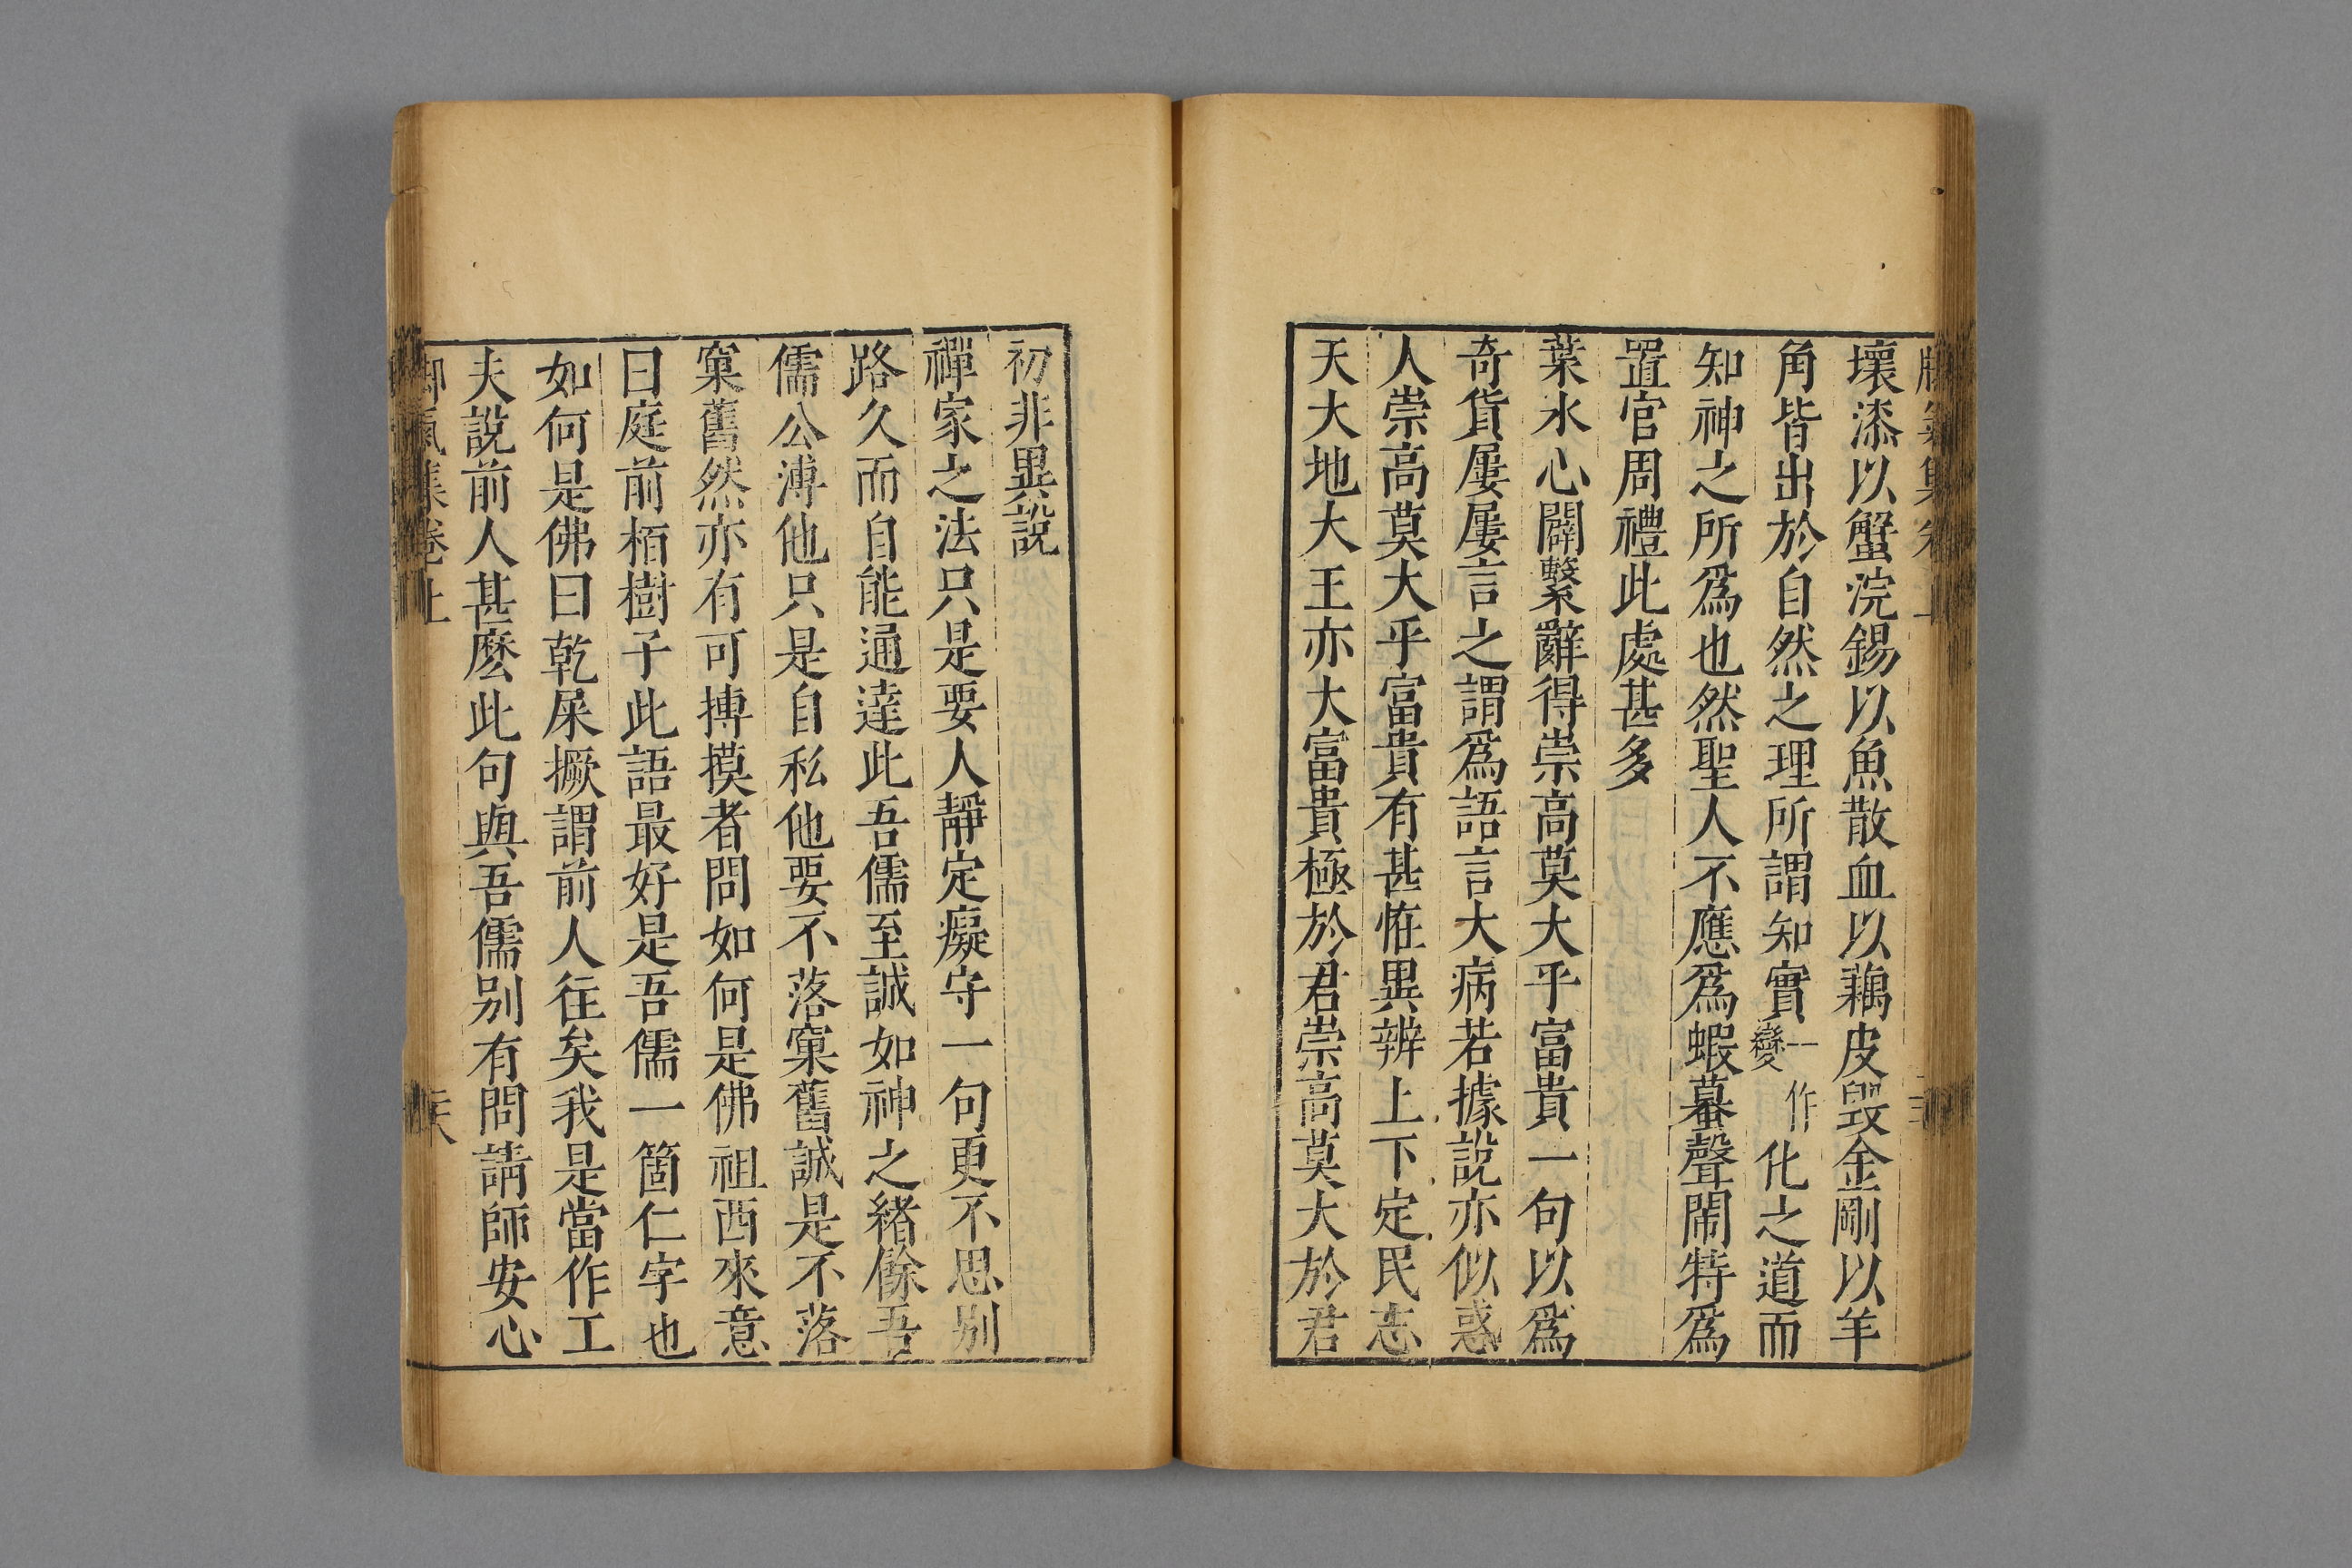 壞漆以蟹浣錫以魚散血以藕皮毀金剛以羊
角皆出於自然之理所謂知實一作變化之道而
知神之所爲也然聖人不應爲蝦蟇聲鬧特爲
置官周禮此處甚多
葉水心闢繫辭得崇高莫大乎富貴一句以爲
奇貨屢屢言之謂爲語言大病若據說亦似惑
人崇高莫大乎富貴有甚恠異辨上下定民志
天大地大王亦大富貴極於君崇高莫大於君
初非異說
禪家之法只是要人靜定癡守一句更不思别
路久而自能通達此吾儒至誠如神之緒餘吾
儒公溥他只是自私他要不落窠舊誠是不落
窠舊然亦有可摶摸者問如何是佛祖西來意
曰庭前栢樹子此語最好是吾儒一箇仁字也
如何是佛曰乾屎撅謂前人往矣我是當作工
夫說前人甚麽此句與吾儒别有問請師安心
腳氣集卷上